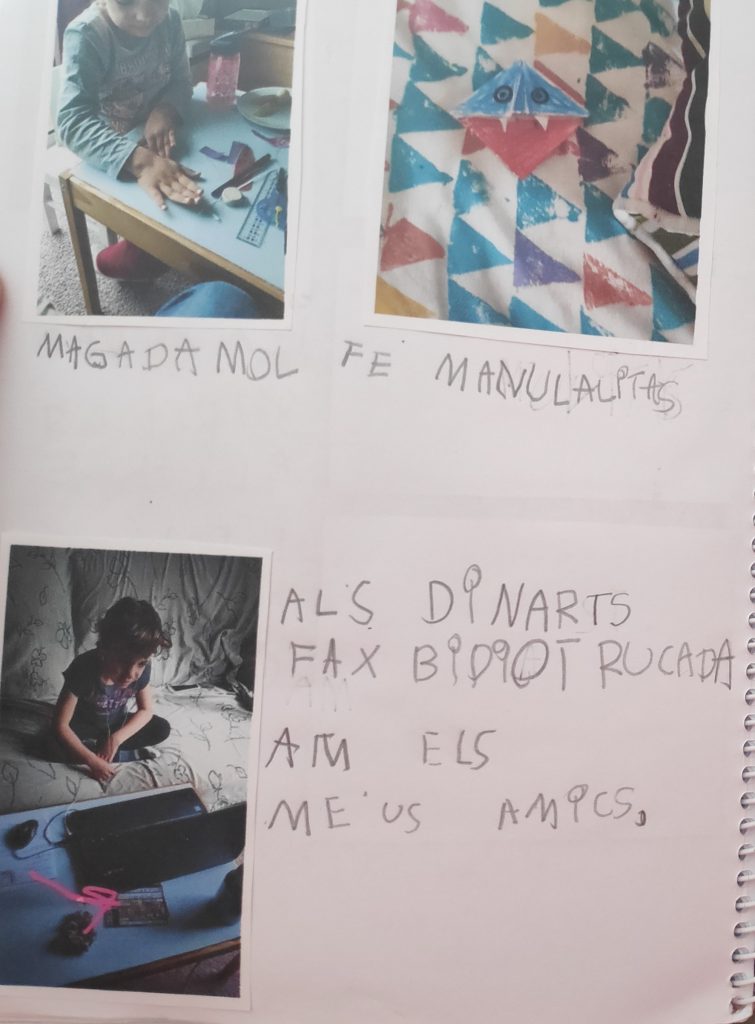 MAGADA MOL FE MANULALITAS
ALS DINARTS
FAX BIDIOT RUCADA
AM ELS
ME'US AMICS.